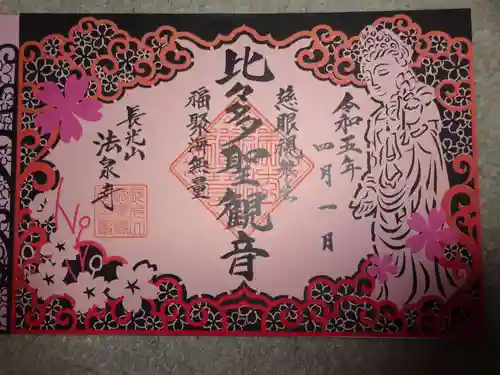 令和五年
四月一日
慈眼視衆生
比々多聖観音
福聚海無量
長光山
法泉寺
No